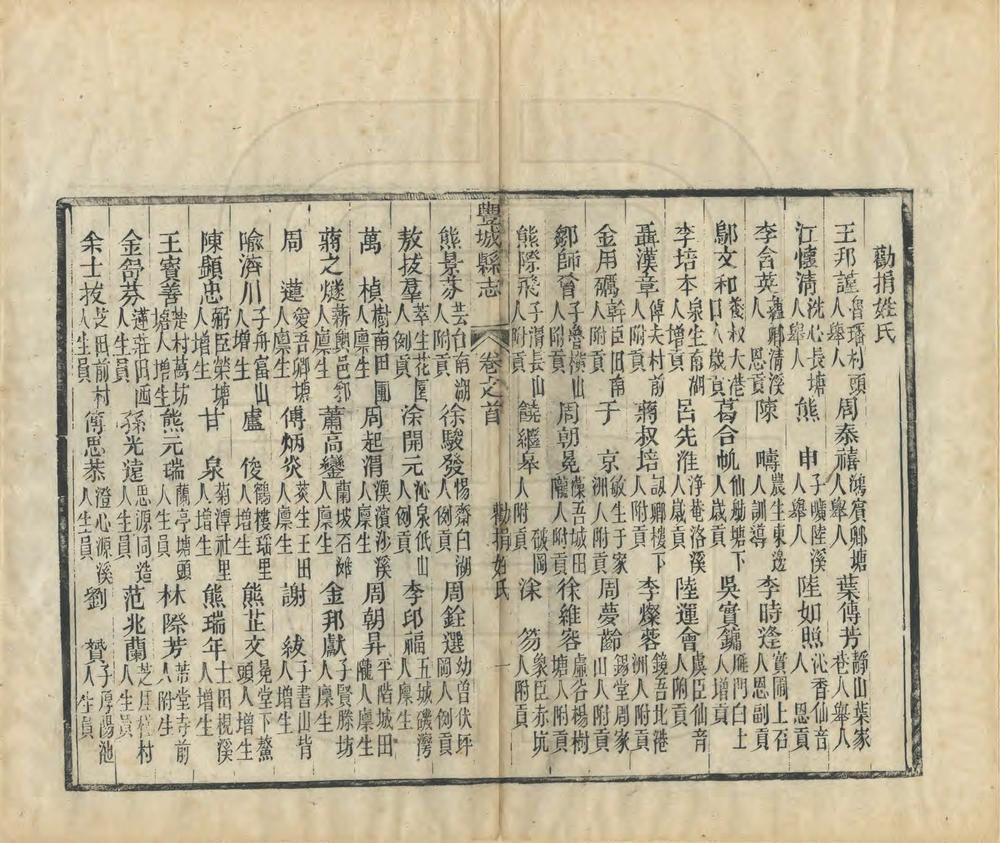 勸捐姓氏
王邦謹魯璠村頭人舉人 周泰禧鴻賓鄔塘人舉人 葉傅芳靜山葉家巷人舉人
江懷清洗心長塘人舉人 熊申子曠陸溪人舉人 陸如照沁香仙音人恩貢
李含英鄉清溪人恩貢 陳疇農生東邊人訓導 李時逢實圃上石人恩副貢
鄔文和大港口人歲貢 葛合帆仙舫塘下人歲貢 吳實鏞雁門白土人增貢
李培本泉生南湖人增貢 呂先淮淨菴洛溪人歲貢 陸運會虞臣仙音人附貢
聶漢章倬夫村前人附貢 蔣叔培詡卿樓下人附貢 李燦蓉鏡吾北港洲人附貢
金用礪幹臣旧南人附貢 子京敏生于家洲人附貢 周夢齡錫堂周家山人附貢
鄒師會子魯橫山人附貢 周朝晃樸吾城田隴人附貢 徐維容虛谷楊樹塘人附貢
熊際飛子渭長山人附貢 饒繼皋硋岡人附貢 涂笏象臣赤坑人附貢
豐城縣志 卷之首 勸捐姓氏 一
熊景棻芸台南湖人附貢 徐駿發惕齋白湖人例貢 周銓選幼曾伏坪岡人例貢
敖拔羣萃生花園人例貢 涂開元沁泉低山人例貢 李邱福五城磯灣人廩生
萬楨樹南田圃人廩生 周起渭漢濱涉溪人廩生 周朝昇平階城田隴人廩生
蔣之燧薪輿邑邨人廩生 蕭高鑾蘭坡石灘人廩生 金邦獻子賢滕坊人廩生
周蓮愛吾卿塘人廩生 傅炳炎菼生王田人廩生 謝紱子書山背人增生
喻濟川子舟富山人增生 盧俊鶴樓瑶里人增生 熊芷文晃堂下鰲頭人增生
陳顯忠弼臣榮塘人增生 甘泉菊潭社里人增生 熊瑞年士田梘溪人增生
王寶善楚村萬坊塘人增生 熊元瑞蘭亭塘頭人生員 林際芳蒂堂寺前人附生
金舒芬蓮莊旧西人生員 孫光遠思源同造人生員 范兆蘭芝人生員
余士拔芝田前村人生員 傅思恭澄心源溪人生員 劉贊子厚陽池人生員